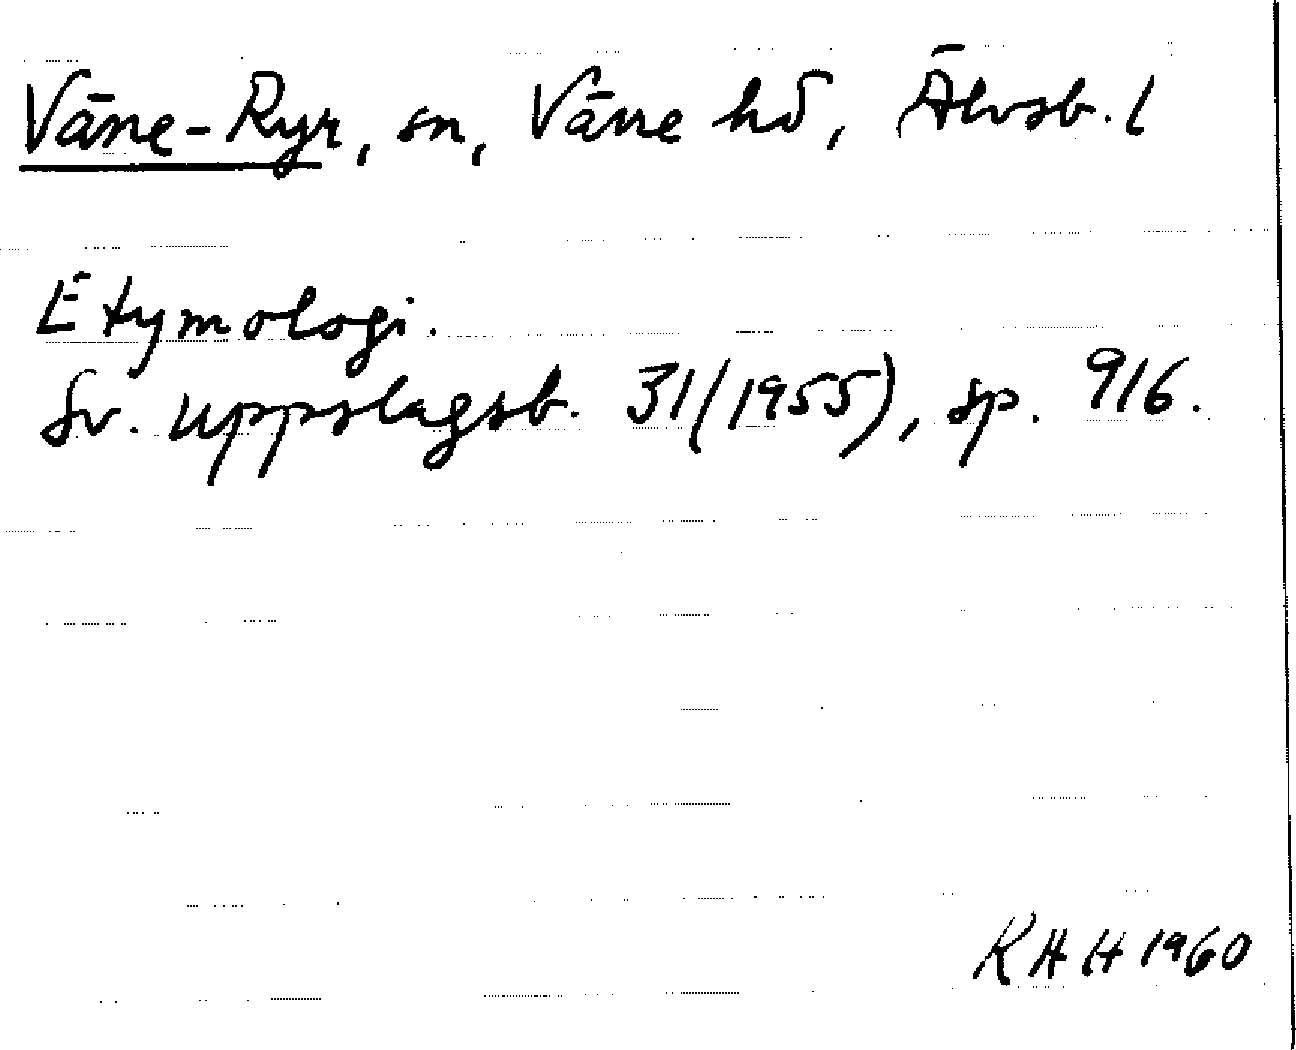 Väne-Ryr, sn, Väne hd, Älvsb. l
Etymologi.
Sv. uppslagsb. 31(1955), sp. 916.
RHH 1960